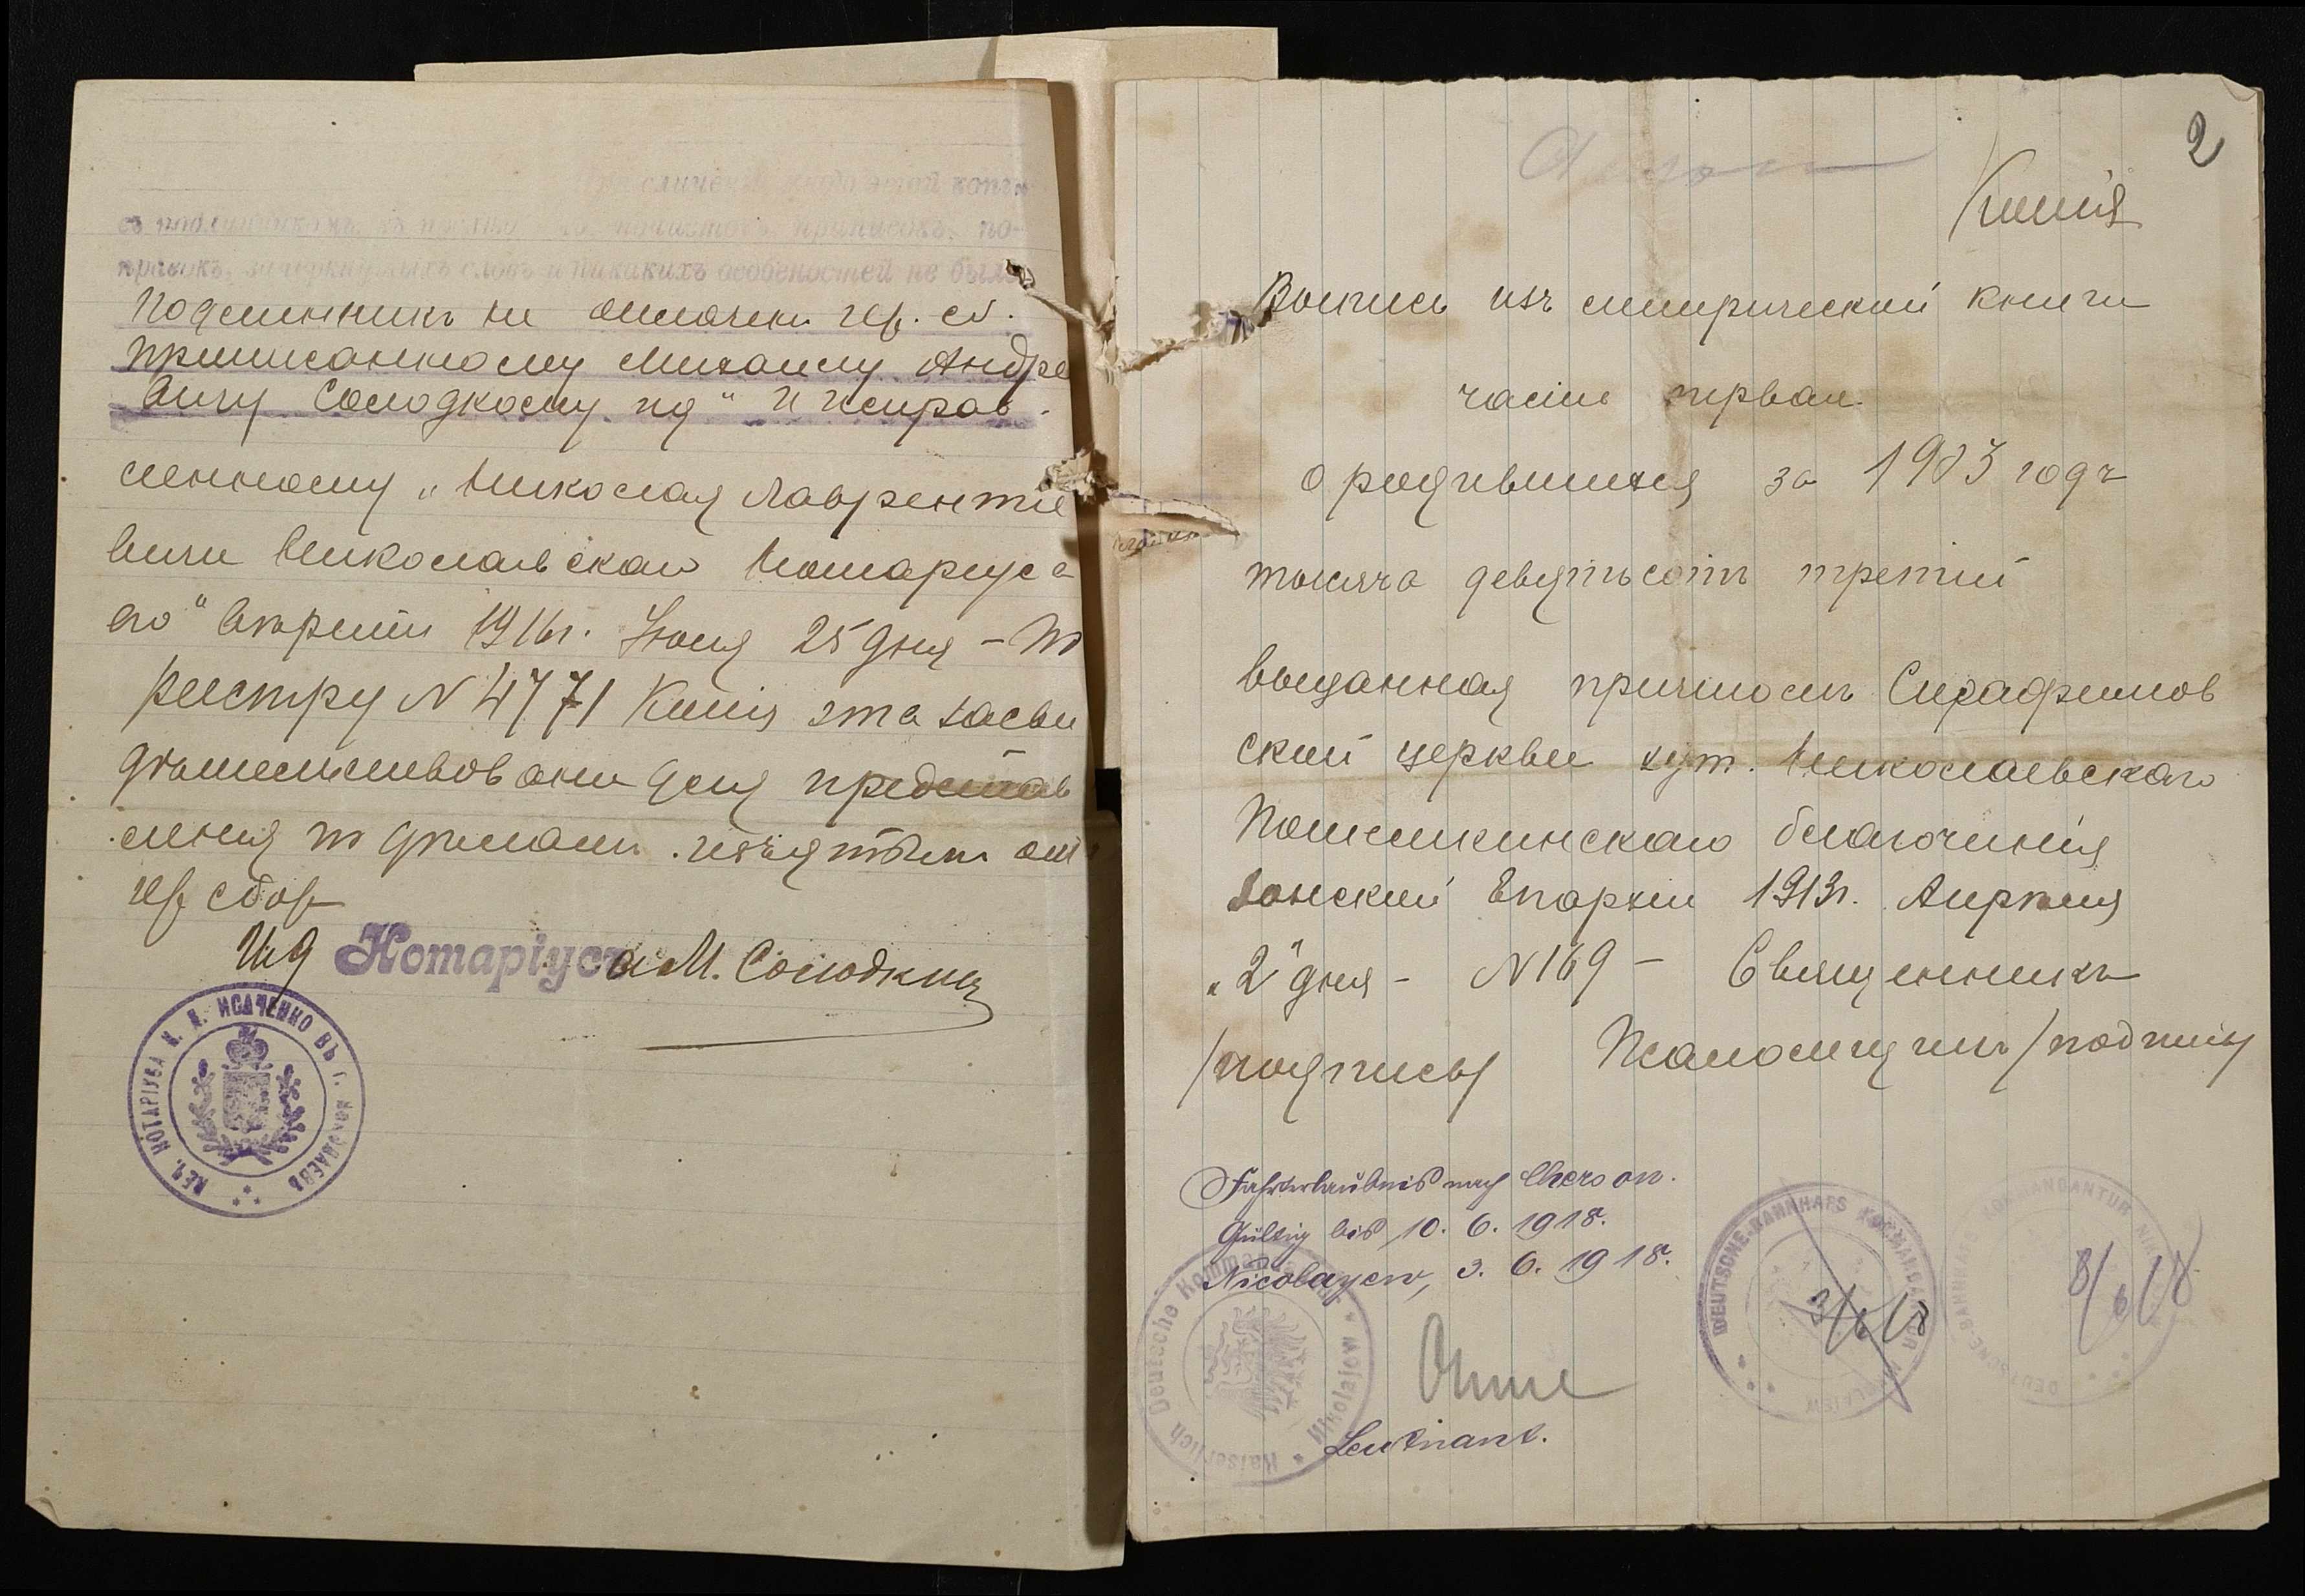 сличеніи этой копіи
съ подлинникомъ, въ подчистокъ, приписокъ, по-
правокъ, зачеркнутыхъ словъ и никакихъ особенностей не было
Подлинникъ не оплоченъ гер. сб.
приписанному Михаилу Андре
вичу Солодкому ид" и исправ
ленному "Николая Лаврентье
вича Николаевскаго Нотаріуса
его" вѣрить 1916г. Іюня 25 дня – По
реестру N 4771 Копія эта засви
дѣтельствована для представ
ленія по дѣламъ изъятымъ отъ
гер сбор
Ид Нотаріуса М. Солодкій
ПЕЧ. НОТАРІУСА Н. Л. ИСАЧЕНКО ВЪ Г. НИКОЛАЕВѢ
2
Копія
Выпись изъ метрической книги
часть первая
о родившихся за 1903 годъ
тысяча девятьсотъ третій
выданная причтомъ Серафимов
ской церкви хут. Николаевскаго
благочинія
Донской Епархіи 1913г. Апрѣля
"2" дня – N 169 – Священникъ
/подпись/ /подпись/
Fahrterlaubnis nach Cherson.
Gültig bis 10. 6. 1918.
Nicolayew, 3. 6. 1918.
Kaiserlich Deutsche Kommandantur Nikolajew
Leutnant.
DEUTSCHE-BAHNHOFS KOMMANDANTUR NIKOLAJEW
3/6/18
DEUTSCHE-BAHNHOFS KOMMANDANTUR NIKOLAJEW
8/6/18